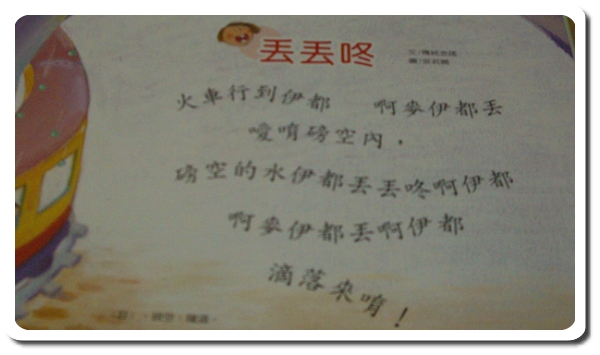 丟丟咚
文/傳統念謠
火車行到伊都 啊麥伊都丟
噯唷磅空內，
磅空的水伊都丟丟咚啊伊都
啊麥伊都丟啊伊都
滴落來唷！